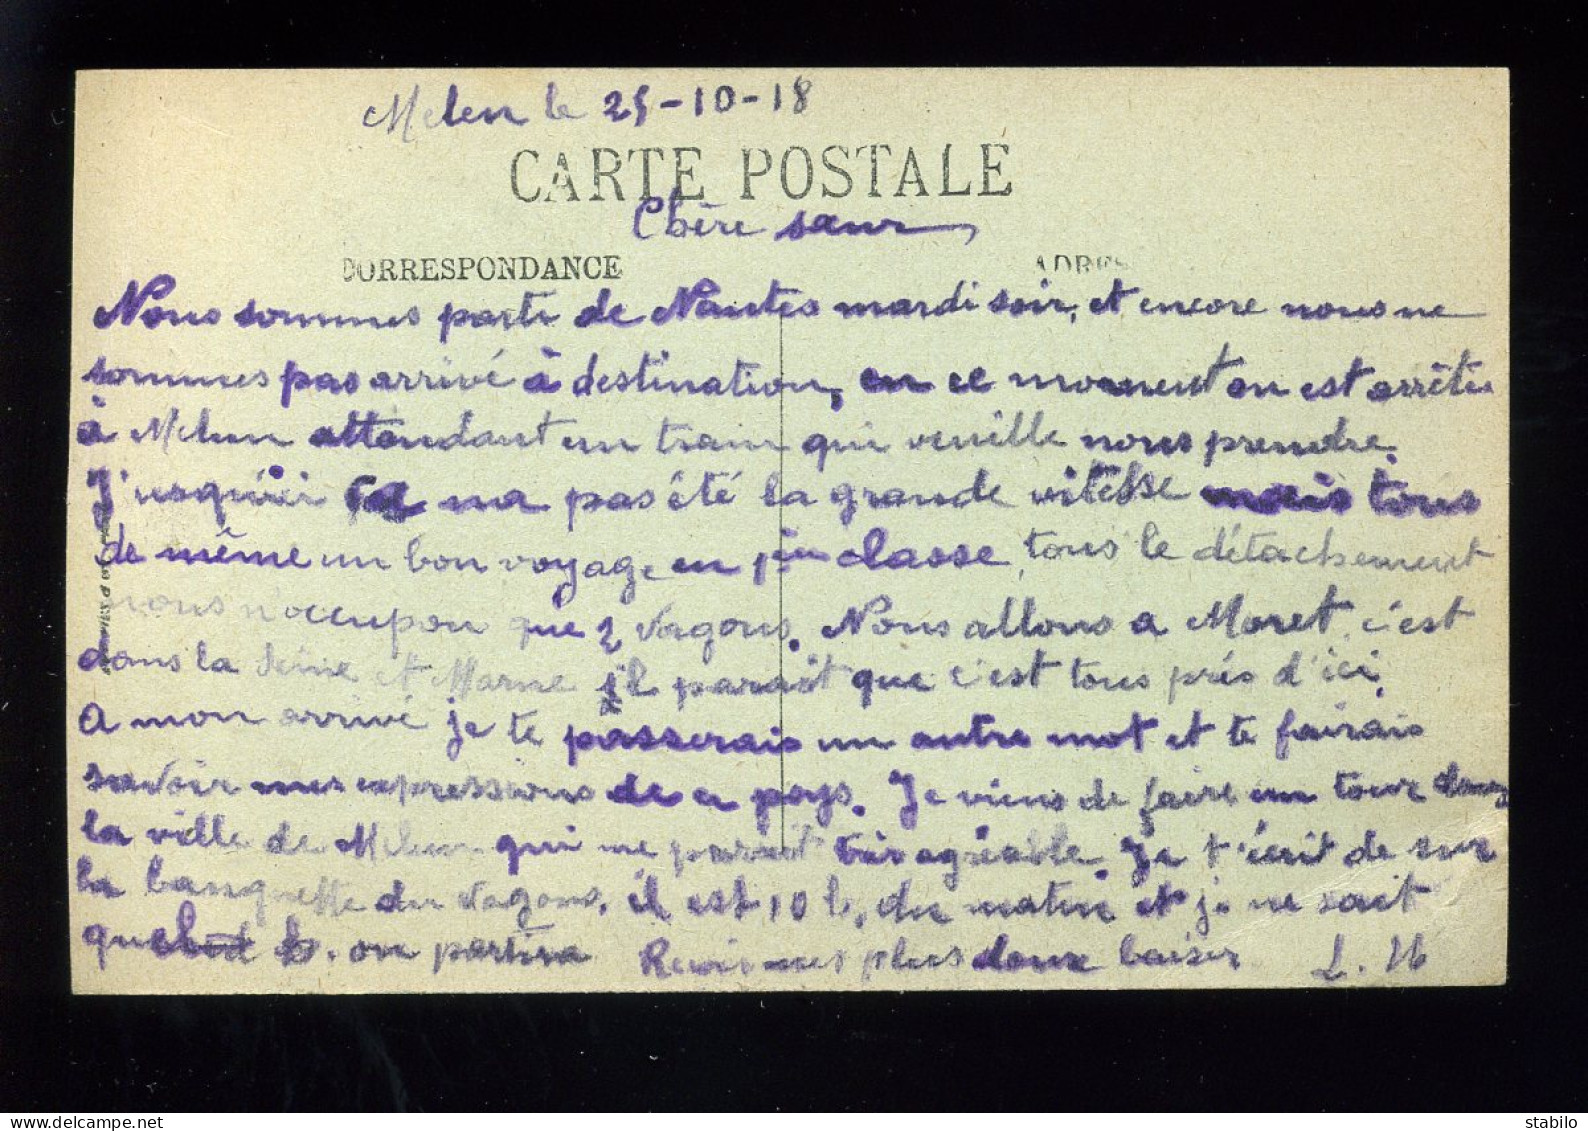 Melun le 25-10-18
CARTE POSTALE
Chère sœur,
CORRESPONDANCE
Nous sommes parti de Nantes mardi soir, et encore nous ne
sommes pas arrivé à destination, en ce moment on est arrêtés
à Melun attendant un train qui veuille nous prendre.
J'usqu'ici sa na pas été la grande vitesse mais tous
de même un bon voyage en 1ère classe, tous le détachement
nous n'occupon que 2 vagons. Nous allons a Moret, c'est
dans la Seine et Marne il parait que c'est tous près d'ici.
A mon arrivé je te passerais un autre mot et te fairais
savoir mes expressions de ce pays. Je viens de faire un tour dans
la ville de Melun qui me parait très agréable. Je t'écrit de sur
la banquette du vagons, il est 10 h. du matin et je ne sait
quel h. on partira Recois mes plus doux baiser L. H
delcampe.net
stabilo